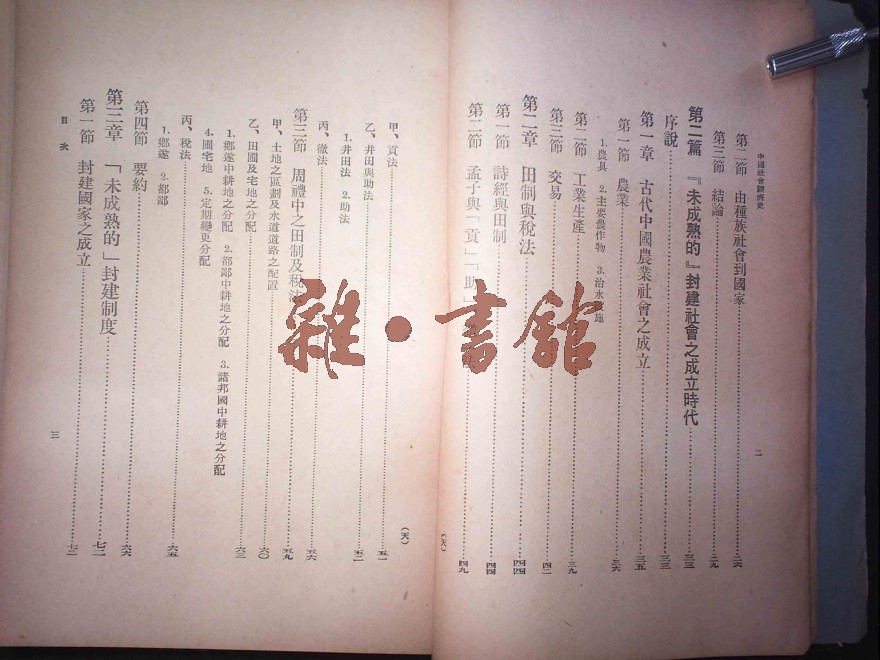 中國社會經濟史
二
第二節 由種族社會到國家……二六
第三節 結論……二九
第二篇 『未成熟的』封建社會之成立時代……三三
序說……三三
第一章 古代中國農業社會之成立……三五
第一節 農業……三六
1. 農具 2. 主要農作物 3. 治水 地
第二節 工業生產……三九
第三節 交易……四二
第二章 田制與稅法……四四
第一節 詩經與田制……四四
第二節 孟子與「貢」「助」……四九
(天)
(天)
甲、貢法……五一
乙、井田與助法……五二
1. 井田法 2. 助法
丙、徹法……五六
第三節 周禮中之田制及稅法……五九
甲、土地之區劃及水道道路之配置……六〇
乙、田圃及宅地之分配……六三
1. 鄉遂中耕地之分配 2. 都鄙中耕地之分配 3. 諸邦國中耕地之分配
4. 圃宅地 5. 定期變更分配
丙、稅法……六五
1. 鄉遂 2. 都鄙
第四節 要約……六六
第三章 「未成熟的」封建制度……七二
第一節 封建國家之成立……七二
目次
三
雜·書館